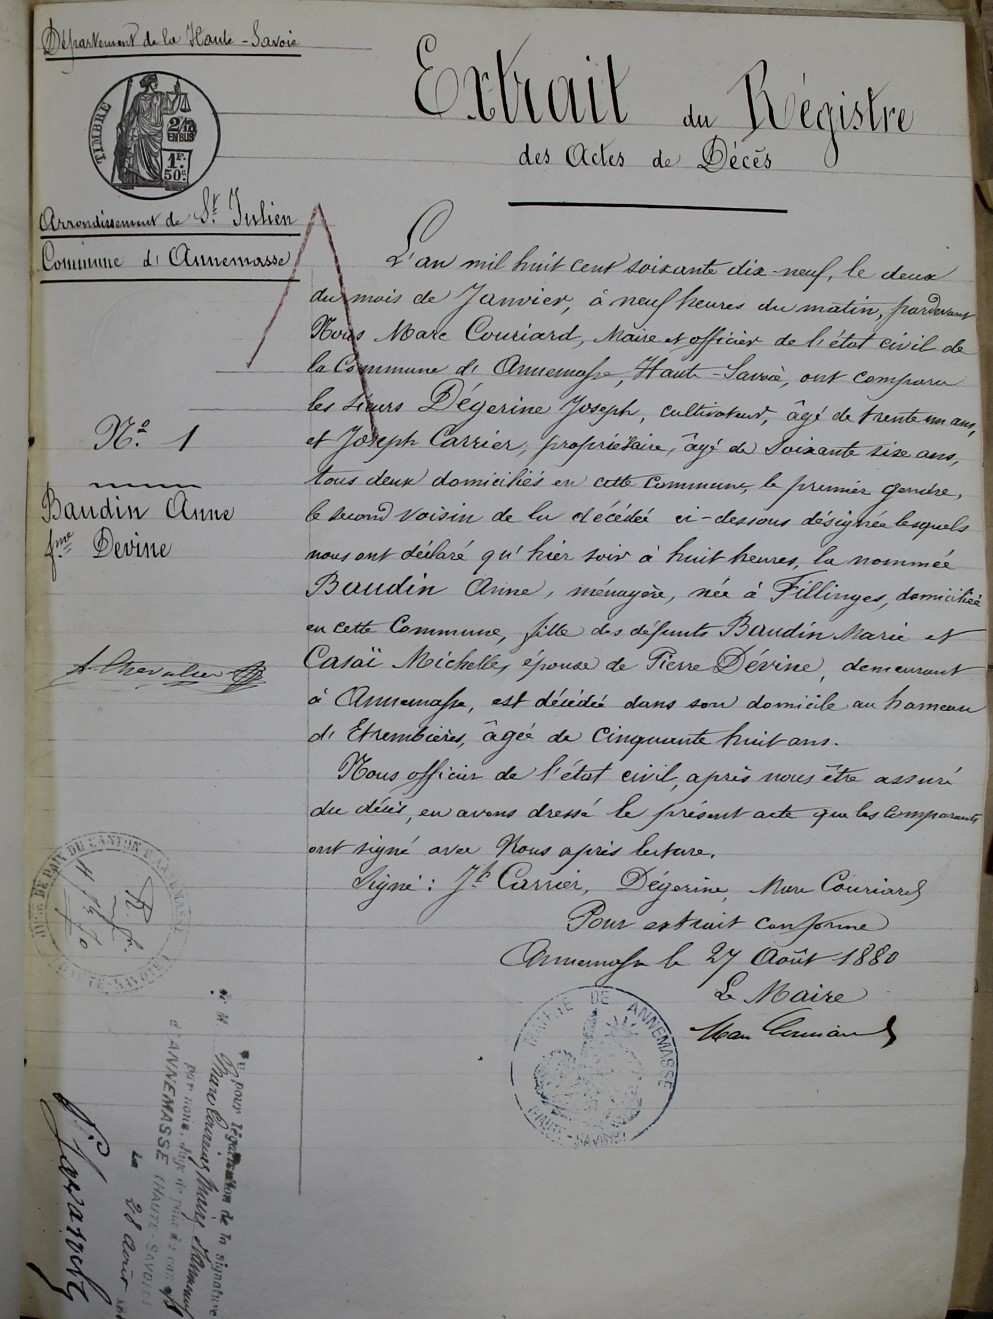 Département de la Haute-Savoie
TIMBRE
2/10
EN SUS
1F.
50c.
Extrait du Régistre
des Actes de Décès
Arrondissement de St. Julien
Commune d'Annemasse
L'an mil huit cent soixante dix-neuf, le deux
du mois de Janvier, à neuf heures du matin, pardevant
Nous Marc Couriard, Maire et officier de l'état civil de
la Commune d'Annemasse, Haute-Savoie, ont comparu
les sieurs Dégerine Joseph, cultivateur, âgé de trente un ans,
et Joseph Carrier, propriétaire, âgé de soixante sixe ans,
tous deux domiciliés en cette commune, le premier gendre,
le second voisin de la décédée ci-dessous désignée lesquels
nous ont déclaré qu'hier soir à huit heures, la nommée
Baudin Anne, ménagère, née à Fillinges, domiciliée
en cette Commune, fille des défunts Baudin Marie et
Casaï Michelle, épouse de Pierre Dévine, demeurant
à Annemasse, est décédée dans son domicile au hameau
d'Etrembières, âgée de cinquante huit ans.
Nous officier de l'état civil, après nous être assuré
du décès, en avons dressé le présent acte que les comparants
ont signé avec Nous après lecture.
Signé : Jh Carrier, Dégerine, Marc Couriard
Pour extrait conforme
Annemasse le 27 Août 1880
Le Maire
Marc Couriard
N.o 1
Baudin Anne
fme Devine
A. Chevalier
JUGE DE PAIX DU CANTON D'ANNEMASSE
HAUTE-SAVOIE
MAIRIE DE ANNEMASSE
(HAUTE-SAVOIE)
Vu pour légalisation de la signature
de M. Marc Couriard Maire d'Annemasse
par nous, Juge de paix du canton
d'ANNEMASSE (HAUTE-SAVOIE)
Le 28 août